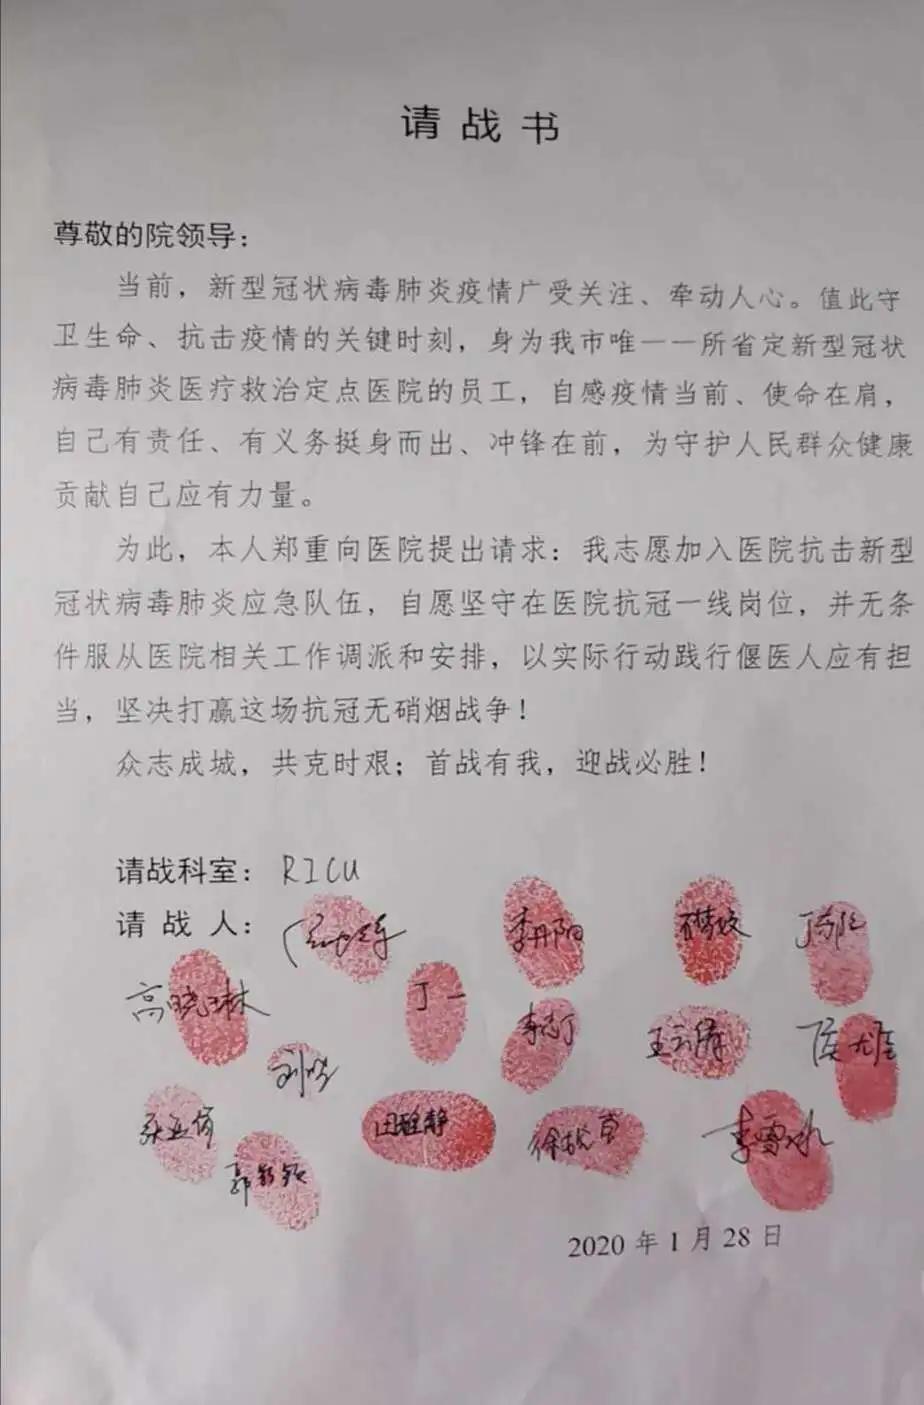 请战书
尊敬的院领导：
当前，新型冠状病毒肺炎疫情广受关注、牵动人心。值此守
卫生命、抗击疫情的关键时刻，身为我市唯一一所省定新型冠状
病毒肺炎医疗救治定点医院的员工，自感疫情当前、使命在肩，
自己有责任、有义务挺身而出、冲锋在前，为守护人民群众健康
贡献自己应有力量。
为此，本人郑重向医院提出请求：我志愿加入医院抗击新型
冠状病毒肺炎应急队伍，自愿坚守在医院抗冠一线岗位，并无条
件服从医院相关工作调派和安排，以实际行动践行偃医人应有担
当，坚决打赢这场抗冠无硝烟战争！
众志成城，共克时艰；首战有我，迎战必胜！
请战科室：RICU
请战人：李丹阳
高晓琳 丁一 李志丁 王云倩
田雅静 李雪冰
2020年1月28日